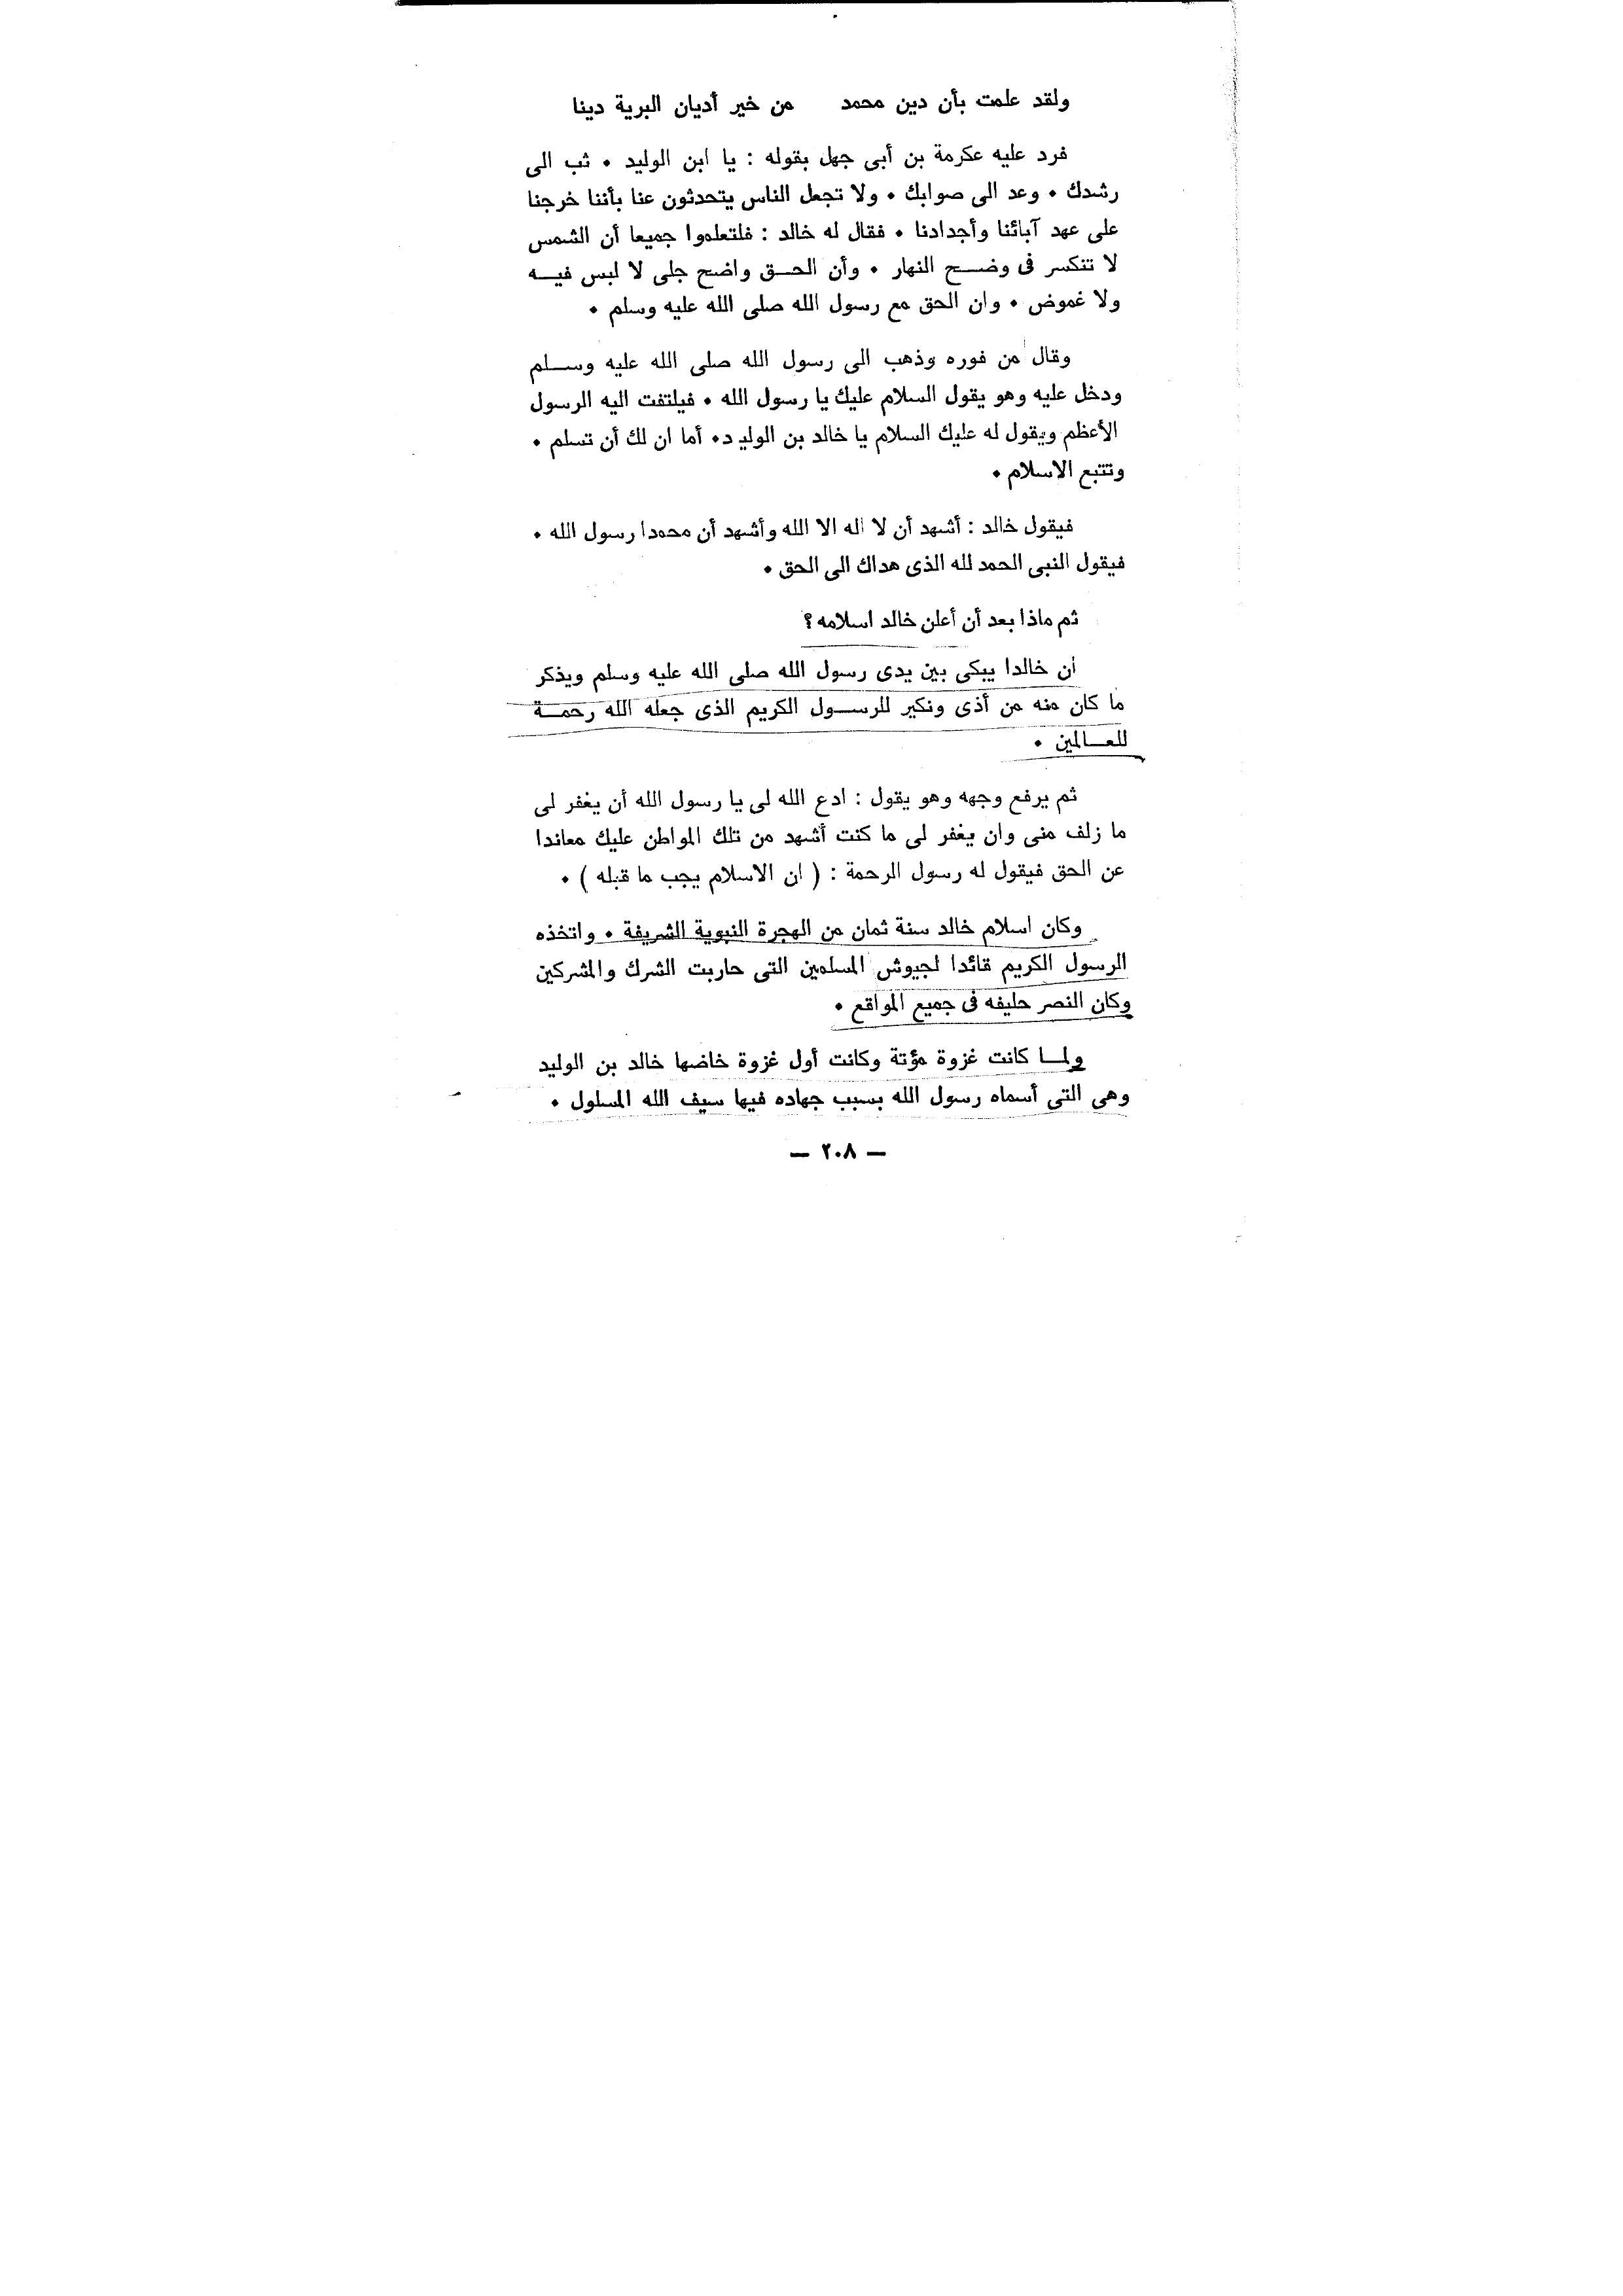 ولقد علمت بأن دين محمد من خير أديان البرية دينا
فرد عليه عكرمة بن أبى جهل بقوله : يا ابن الوليد . ثب الى
رشدك . وعد الى صوابك . ولا تجعل الناس يتحدثون عنا بأننا خرجنا
على عهد آبائنا وأجدادنا . فقال له خالد : فلتعلموا جميعا أن الشمس
لا تنكسر فى وضح النهار . وأن الحق واضح جلى لا لبس فيه
ولا غموض . وان الحق مع رسول الله صلى الله عليه وسلم .
وقال من فوره وذهب الى رسول الله صلى الله عليه وسلم
ودخل عليه وهو يقول السلام عليك يا رسول الله . فيلتفت اليه الرسول
الأعظم ويقول له عليك السلام يا خالد بن الوليد . أما ان لك أن تسلم .
وتتبع الاسلام .
فيقول خالد : أشهد أن لا اله الا الله وأشهد أن محمدا رسول الله .
فيقول النبى الحمد لله الذى هداك الى الحق .
ثم ماذا بعد أن أعلن خالد اسلامه ؟
ان خالدا يبكى بين يدى رسول الله صلى الله عليه وسلم ويذكر
ما كان منه من أذى ونكير للرسول الكريم الذى جعله الله رحمة
للعالمين .
ثم يرفع وجهه وهو يقول : ادع الله لى يا رسول الله أن يغفر لى
ما زلف منى وان يغفر لى ما كنت أشهد من تلك المواطن عليك معاندا
عن الحق فيقول له رسول الرحمة : ( ان الاسلام يجب ما قبله ) .
وكان اسلام خالد سنة ثمان من الهجرة النبوية الشريفة . واتخذه
الرسول الكريم قائدا لجيوش المسلمين التى حاربت الشرك والمشركين
وكان النصر حليفه فى جميع المواقع .
ولما كانت غزوة مؤتة وكانت أول غزوة خاضها خالد بن الوليد
وهى التى أسماه رسول الله بسبب جهاده فيها سيف الله المسلول .
— ٢٠٨ —